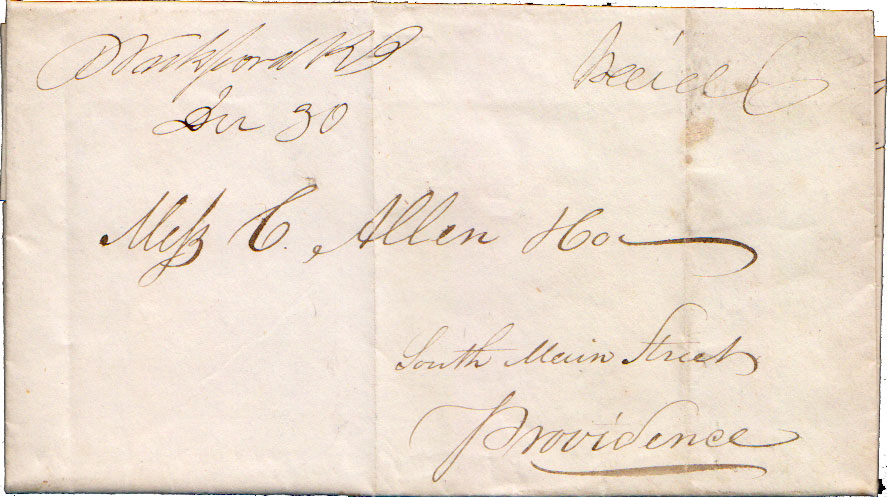 Wickford RI
Paid 6
Dec 30
Mess C. Allen & Co
South Main Street
Providence